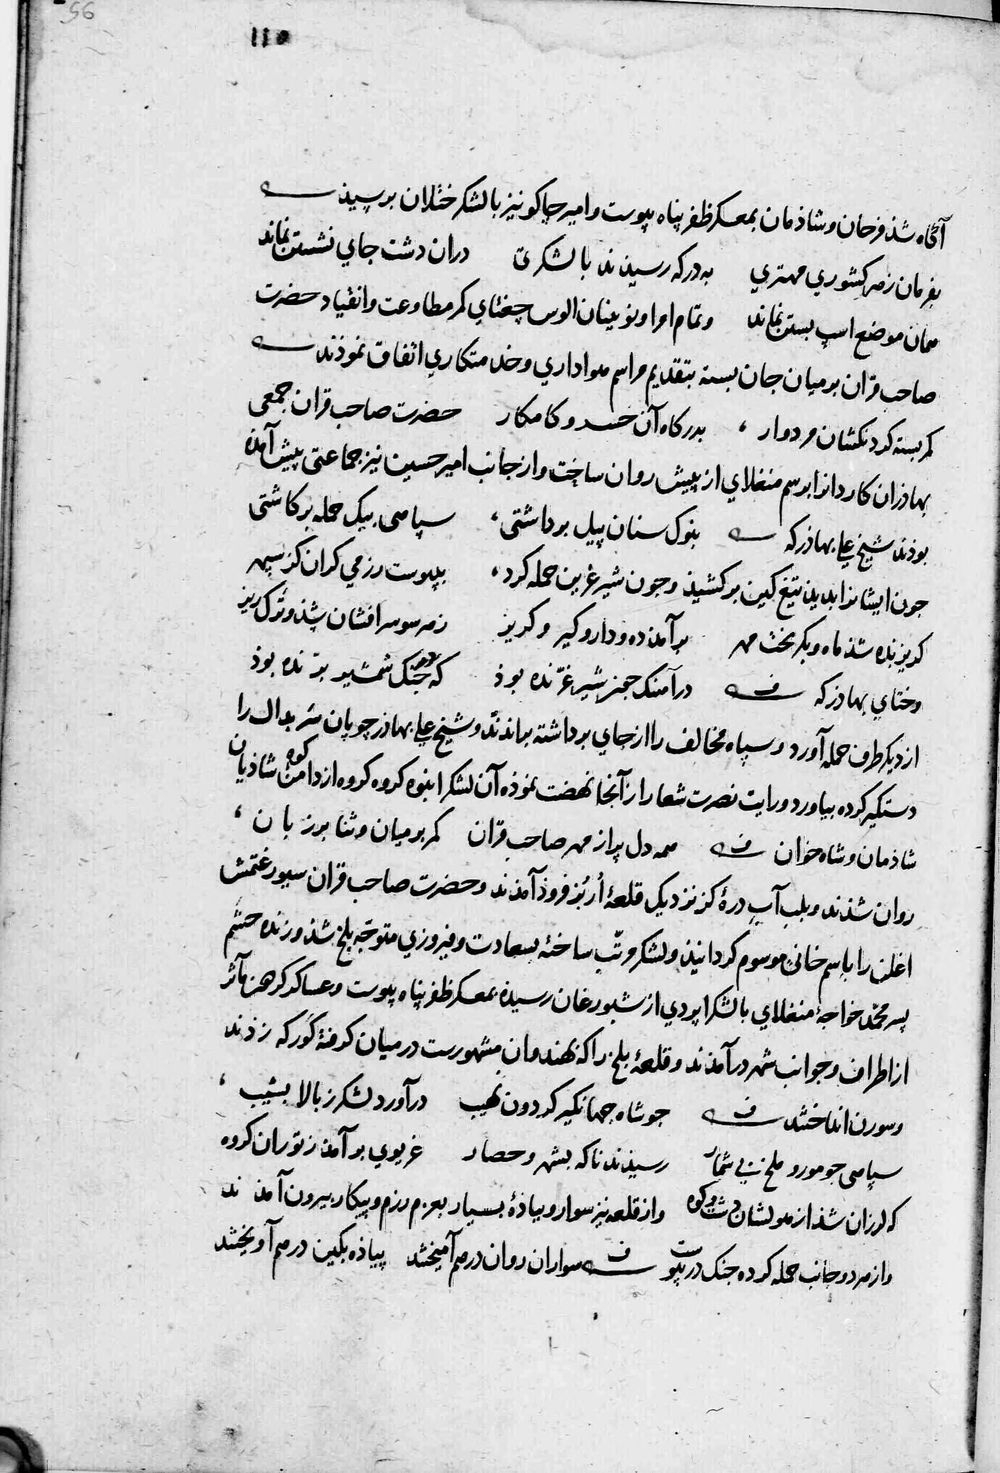 56
١١٥
آگاه شذ فرحان و شاذمان بمعسکر ظفر پناه پیوست و امیر جاکو نیز با لشکر ختلان برسیذ
بفرمان ز هر کشوری مهتری بدرکه رسیذند با لشکری دران دشت جای نشستن نماند
همان موضع اسپ بستن نماند و تمام امرا و نوینان الوس چغتای کمر مطاوعت و انقیاد حضرت
صاحب قران بر میان جان بسته بتقدیم مراسم هواداری و خدمتکاری اتفاق نموذند
کمر بسته کردنکشان هر دوار ، بدرکاه آن خسرو کامکار حضرت صاحب قران جمعی
بهاذران کاردانرا برسم منغلای از پیش روان ساخت و از جانب امیر حسین نیز جماعتی پیش آمذه
بوذند شیخ علی بهاذر که بنوک سنان پیل برداشتی ، سپاهی بیک حمله برکاشتی
جون ایشانرا بدید تیغ کین برکشیذ و جون شیر غرین حمله کرد ، بپیوست رزمی کران کز سپهر
کریزنده شذ ماه و بکریخت مهر برآمذ ده و دار و کیر و کریز ز هر سو سرافشان شذ و ترک ریز
و ختای بهاذر که در آهنک جمز شیر غرّنده بوذ که جنک شمشیر برّنده بوذ
از دیکر طرف حمله آورد و سپاه مخالف را از جای برداشته براندند و شیخ علی بهاذر چوپان سربدال را
دستکیر کرده بیاورد و رایت نصرت شعار از آنجا نهضت نموذه آن لشکر انبوه کروه کروه از دامن کوه شاذیان
شاذمان و شاه خوان همه دل پر از مهر صاحب قران کمر بر میان و ثنا بر زبان ،
روان شذند و بلب آب درهٔ کز نزدیک قلعهٔ اُربُز فروذ آمذند و حضرت صاحب قران سیورغتمش
اغلن را باسم خانی موسوم کردانیذ و لشکر مرتّب ساخته بسعادت و فیروزی متوجّه بلخ شذ و زنده حشم
پسر محمّد خواجه منغلای با لشکر اپردی از شبورغان رسیذه بمعسکر ظفر پناه پیوست و عساکر کردون مآثر
از اطراف و جوانب شهر درآمذند و قلعهٔ بلخ را که بهندوان مشهورست در میان کرفته کورکه زذند
و سورن انداختند جو شاه جهانکیر کردون نهیب درآورد لشکر ز بالا بشیب ،
سپاهی جو مور و ملخ بی شمار رسیذند ناکه بشهر و حصار غریوی برآمذ ز توران کروه
که لرزان شذ از هولشان دشت و کوه و از قلعه نیز سوار و پیاذهٔ بسیار بعزم رزم و پیکار بیرون آمذند
و از هر دو جانب حمله کرده جنک درپیوست سواران روان درهم آمیختند پیاذه بکین درهم آویختند